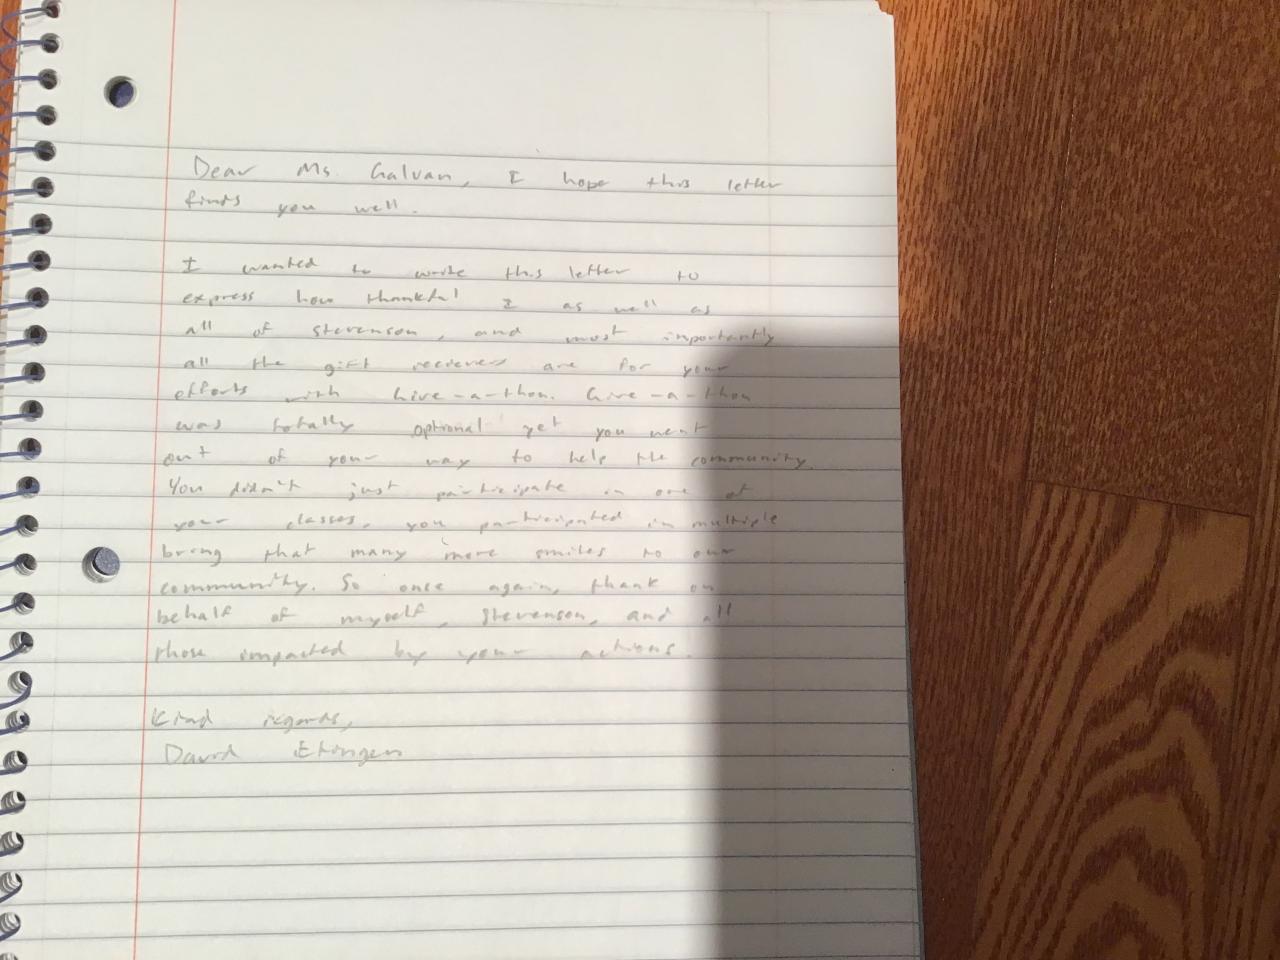 Dear Ms. Galvan, I hope this letter
finds you well.
I wanted to write this letter to
express how thankful I as well as
all of Stevenson, and most importantly
all the gift recievers are for your
efforts with Give-a-thon. Give-a-thon
was totally optional yet you went
out of your way to help the community.
You didn't just participate in one of
your classes, you participated in multiple
bring that many more smiles to our
community. So once again, thank on
behalf of myself, Stevenson, and all
those impacted by your actions.
Kind regards,
David Etingen